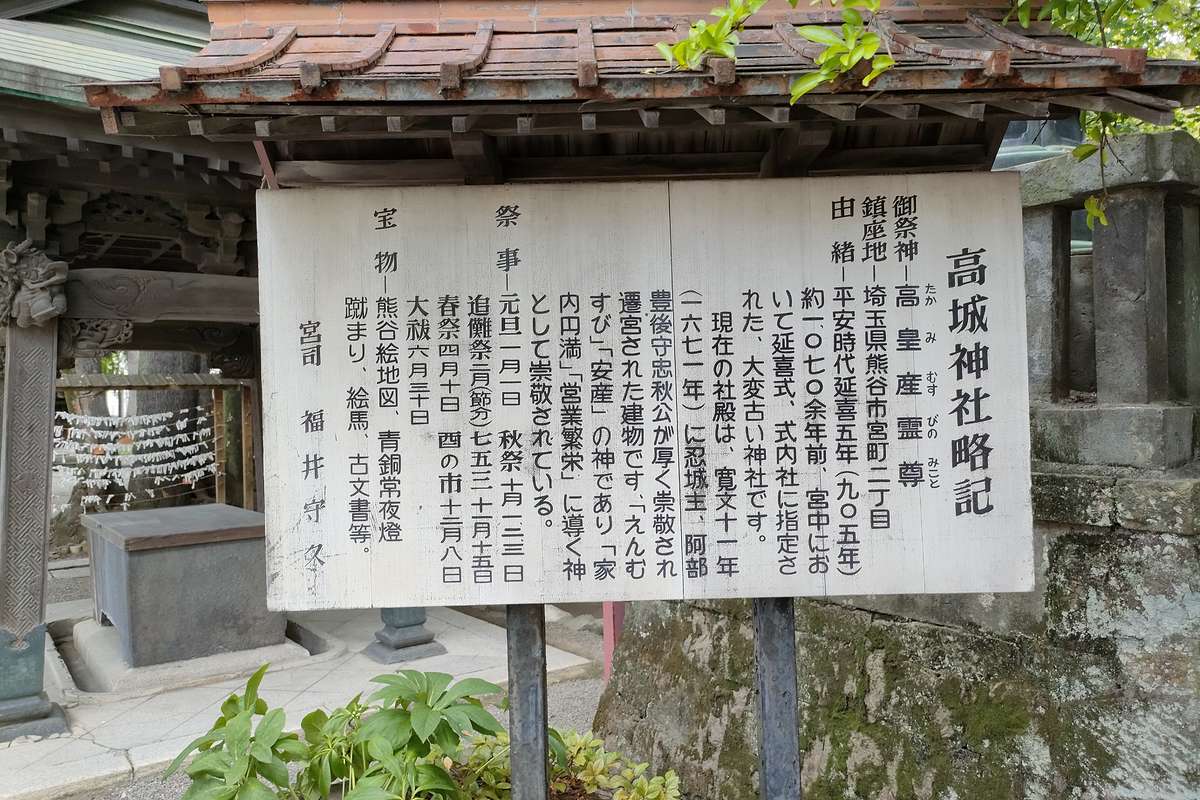 高城神社略記
御祭神―高皇産霊尊
たかみむすびのみこと
鎮座地―埼玉県熊谷市宮町二丁目
由緒―平安時代延喜五年(九〇五年)
約一、〇七〇余年前、宮中にお
いて延喜式、式内社に指定さ
れた、大変古い神社です。
現在の社殿は、寛文十一年
(一六七一年)に忍城主、阿部
豊後守忠秋公が厚く崇敬され
遷宮された建物です、「えんむ
すび」「安産」の神であり「家
内円満」「営業繁栄」に導く神
として崇敬されている。
祭事―元旦一月一日 秋祭十月一二三日
追儺祭二月(節分)七五三十月十五日
春祭四月十日 酉の市十二月八日
大祓六月三十日
宝物―熊谷絵地図、青銅常夜燈
蹴まり、絵馬、古文書等。
宮司 福井守久